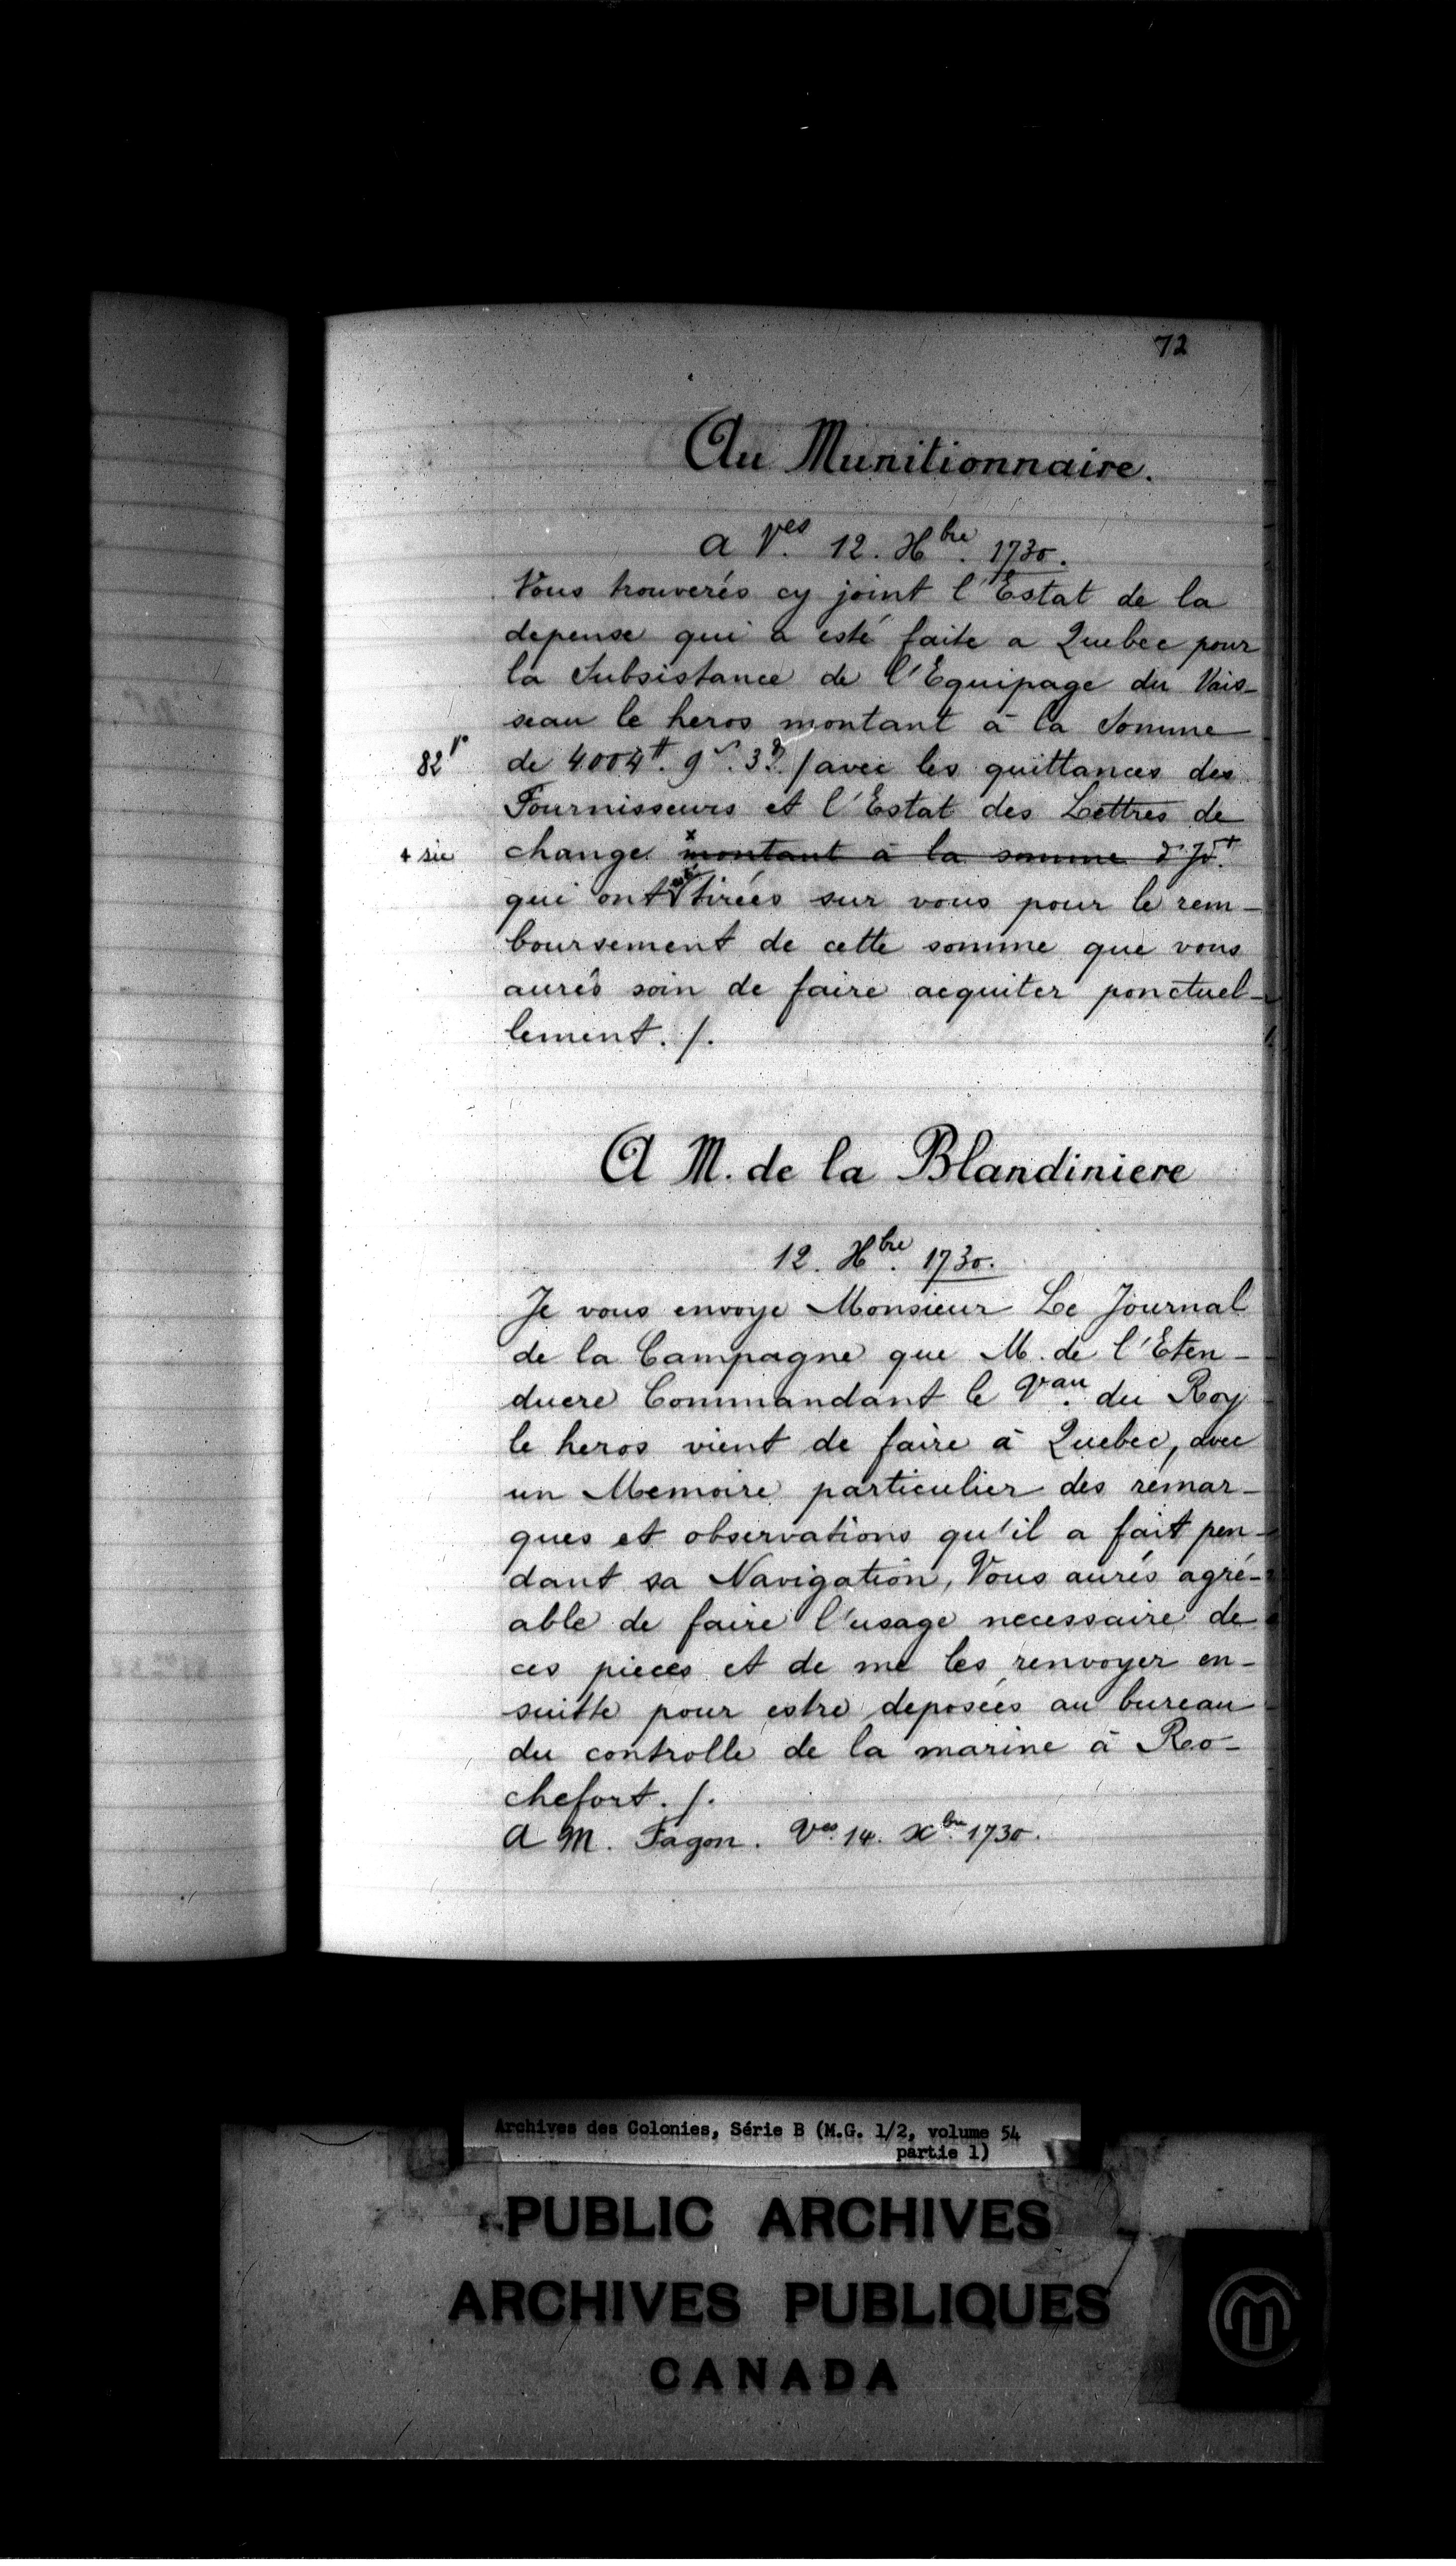 72
Au Munitionnaire.
a Ves. 12. Xbre. 1730.
Vous trouverés cy joint l'Estat de la
depense qui a esté faite a Quebec pour
la Subsistance de l'Equipage du Vais-
seau le heros montant à la Somme
82 vo
de 4004#. 9s. 3d. / avec les quittances des
Fournisseurs et l'Estat des Lettres de
+ sic
change x montant à la somme d'
qui ont été tirées sur vous pour le rem-
boursement de cette somme que vous
aurés soin de faire acquiter ponctuel-
lement. /.
A M. de la Blandiniere
12. Xbre. 1730.
Je vous envoye Monsieur Le Journal
de la Campagne que M. de l'Eten-
duere Commandant le Vau. du Roy
le heros vient de faire à Quebec, avec
un Memoire particulier des remar-
ques et observations qu'il a fait pen-
dant sa Navigation, Vous aurés agré-
able de faire l'usage necessaire de
ces pieces et de me les renvoyer en-
suitte pour estre deposées au bureau
du controlle de la marine à Ro-
chefort. /.
A M. Fagon. Ves. 14. Xbre 1730.
Archives des Colonies, Série B (M.G. 1/2, volume 54
partie 1)
PUBLIC ARCHIVES
ARCHIVES PUBLIQUES
CANADA